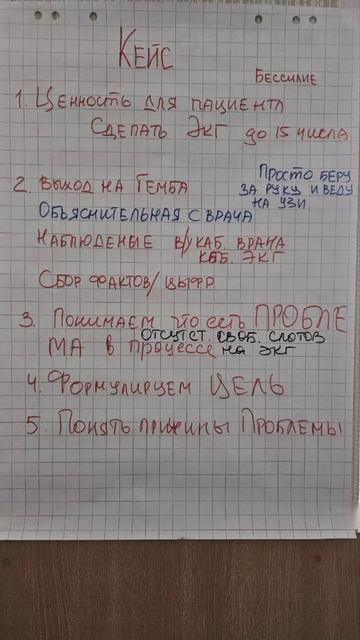 Кейс
Бессилие
1. Ценность для пациента
Сделать ЭКГ до 15 числа
Просто беру
за руку и веду
на УЗИ
2. Выход на Гемба
Объяснительная с врача
Наблюденые в/у каб. врача
каб. ЭКГ
Сбор фактов/цыфр
3. Понимаем что есть ПРОБЛЕ
отсутст. своб. слотов
МА в процессе на ЭКГ
4. Формулируем ЦЕЛЬ
5. Понять причины Проблемы